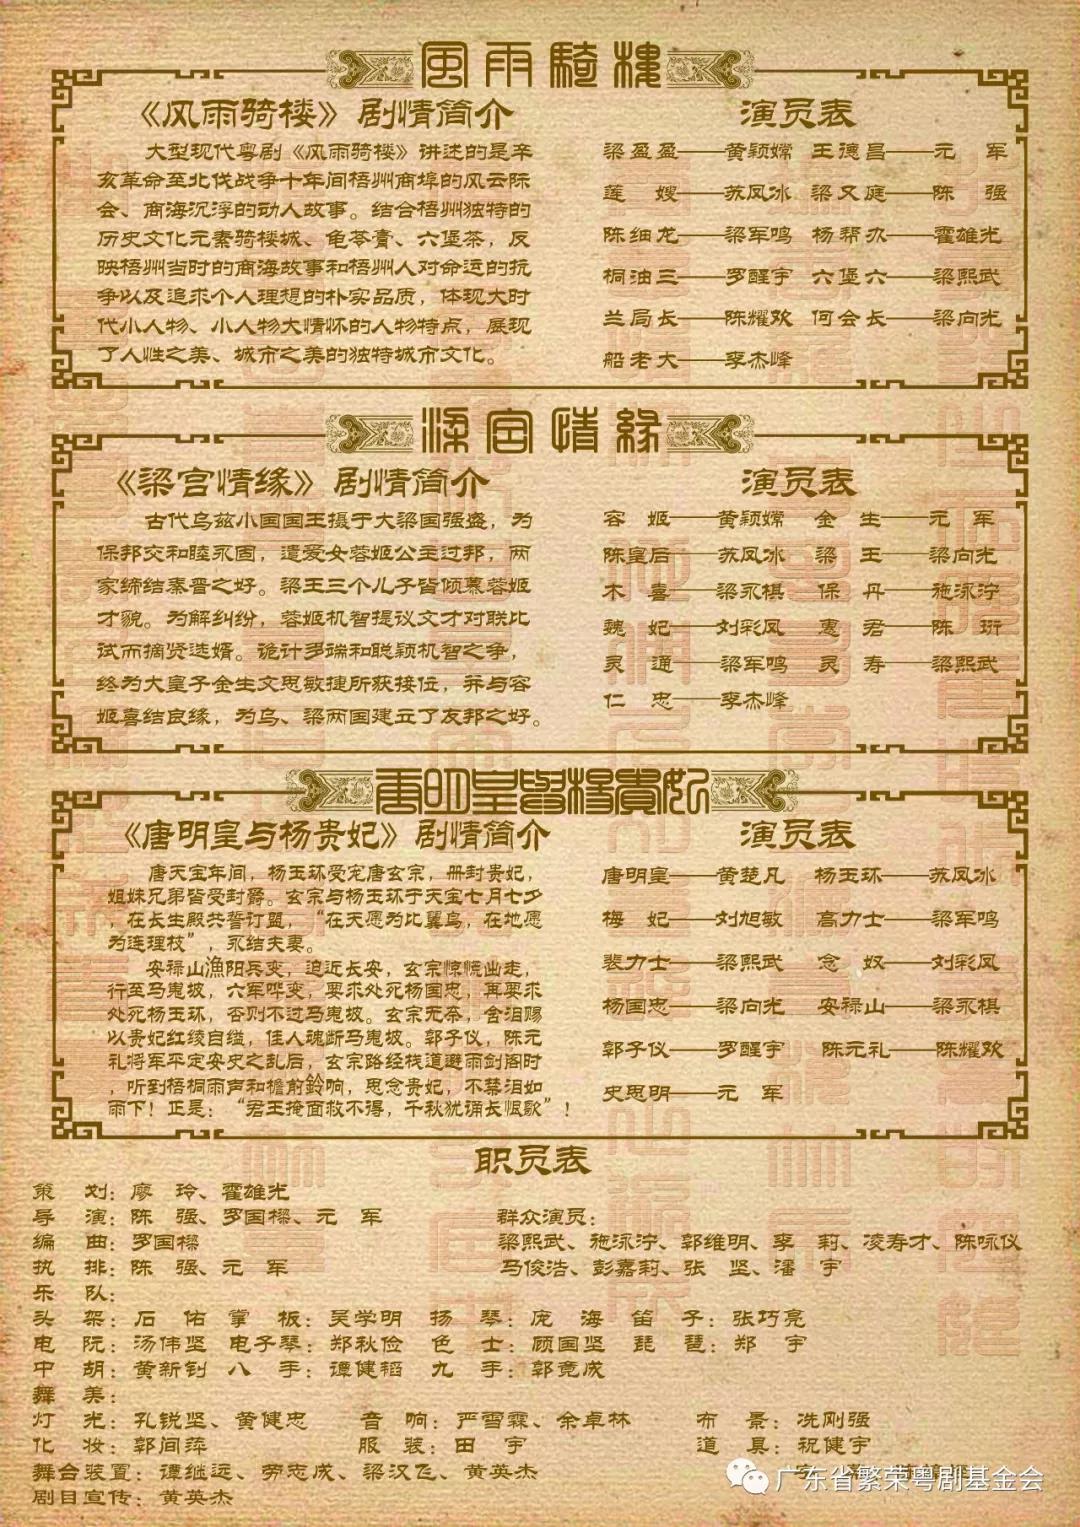 風雨騎樓
《风雨骑楼》剧情简介
大型现代粤剧《风雨骑楼》讲述的是辛
亥革命至北伐战争十年间梧州商埠的风云际
会、商海沉浮的动人故事。结合梧州独特的
历史文化元素骑楼城、龟苓膏、六堡茶，反
映梧州当时的商海故事和梧州人对命运的抗
争以及追求个人理想的朴实品质，体现大时
代小人物、小人物大情怀的人物特点，展现
了人性之美、城市之美的独特城市文化。
演员表
梁盈盈——黄颖嫦 王德昌——元 军
莲 嫂——苏凤冰 梁又庭——陈 强
陈细龙——梁军鸣 杨帮办——霍雄光
桐油三——罗醒宇 六堡六——梁熙武
兰局长——陈耀欢 何会长——梁向光
船老大——李杰峰
梁宫情緣
《梁宫情缘》剧情简介
古代乌兹小国国王摄于大梁国强盛，为
保邦交和睦永固，遣爱女蓉姬公主过邦，两
家缔结秦晋之好。梁王三个儿子皆倾慕蓉姬
才貌。为解纠纷，蓉姬机智提议文才对联比
试而摘贤选婿。诡计多端和聪颖机智之争，
终为大皇子金生文思敏捷所获接位，并与容
姬喜结良缘，为乌、梁两国建立了友邦之好。
演员表
容 姬——黄颖嫦 金 生——元 军
陈皇后——苏凤冰 梁 王——梁向光
木 喜——梁永棋 保 丹——施泳泞
魏 妃——刘彩凤 惠 君——陈 珩
灵 通——梁军鸣 灵 寿——梁熙武
仁 忠——李杰峰
唐明皇與楊貴妃
《唐明皇与杨贵妃》剧情简介
唐天宝年间，杨玉环受宠唐玄宗，册封贵妃，
姐妹兄弟皆受封爵。玄宗与杨玉环于天宝七月七夕
，在长生殿共誓订盟，“在天愿为比翼鸟，在地愿
为连理枝”，永结夫妻。
安禄山渔阳兵变，迫近长安，玄宗惊慌出走，
行至马嵬坡，六军哗变，要求处死杨国忠，再要求
处死杨玉环，否则不过马嵬坡。玄宗无奈，含泪赐
以贵妃红绫自缢，佳人魂断马嵬坡。郭子仪，陈元
礼将军平定安史之乱后，玄宗路经栈道避雨剑阁时
，听到梧桐雨声和檐前鈴响，思念贵妃，不禁泪如
雨下！正是：“君王掩面救不得，千秋犹诵长恨歌”！
演员表
唐明皇——黄楚凡 杨玉环——苏凤冰
梅 妃——刘旭敏 高力士——梁军鸣
裴力士——梁熙武 念 奴——刘彩凤
杨国忠——梁向光 安禄山——梁永棋
郭子仪——罗醒宇 陈元礼——陈耀欢
史思明——元 军
职员表
策 划：廖 玲、霍雄光
导 演：陈 强、罗国樑、元 军
编 曲：罗国樑
执 排：陈 强、元 军
群众演员：
梁熙武、施泳泞、郭维明、李 莉、凌寿才、陈咏仪
马俊浩、彭嘉莉、张 坚、潘 宇
乐 队：
头 架：石 佑 掌 板：吴学明 扬 琴：庞 海 笛 子：张巧亮
电 阮：汤伟坚 电子琴：郑秋俭 色 士：顾国坚 琵 琶：郑 宇
中 胡：黄新钊 八 手：谭健韬 九 手：郭竞成
舞 美：
灯 光：孔锐坚、黄健忠 音 响：严雪霖、余卓林 布 景：冼刚强
化 妆：郭间萍 服 装：田 宇 道 具：祝健宇
舞台装置：谭继远、劳志成、梁汉飞、黄英杰
剧目宣传：黄英杰
广东省繁荣粤剧基金会